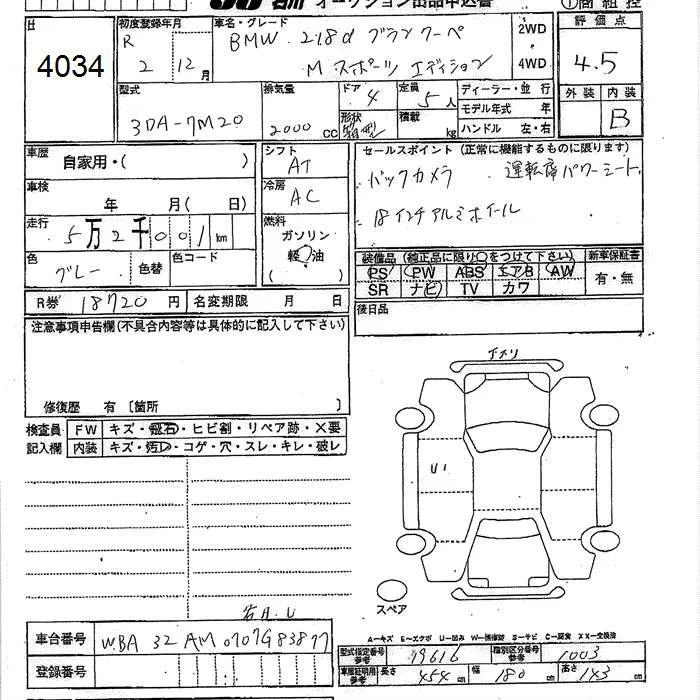 石川 オークション出品申込書
① 商 組 控
4034
初度登録年月
R 2 年 12 月
車名・グレード
BMW 218d グランクーペ
M スポーツ エディション
2WD
4WD
評 価 点
4.5
外 装 内 装
B
型式
3DA-7M20
排気量
2000 cc
ドア 4
形状 箱型
定員 5 人
積載 kg
ディーラー・並 行
モデル年式 年
ハンドル 左・右
車歴
自家用・( )
車検
年 月( 日)
走行
5万2千001 km
色
グレー
色替
色コード
シフト
AT
冷房
AC
燃料
ガソリン
軽油
( )
セールスポイント (正常に機能するものに限ります)
バックカメラ 運転席パワーシート
18インチアルミホイール
装備品 (純正品に限り○をつけて下さい)
新車保証書
PS PW ABS エアB AW
SR ナビ TV カワ
有・無
R券 18720 円 名変期限 月 日
後日品
注意事項申告欄(不具合内容等は具体的に記入して下さい)
修復歴 有 〔箇所 〕
検査員
記入欄
FW キズ・飛石・ヒビ割・リペア跡・×要
内装 キズ・汚レ・コゲ・穴・スレ・キレ・破レ
U1
スペア
A―キズ E―エクボ U―凹み W―補修跡 S―サビ C―腐食 XX―交換済
車台番号 WBA 32 AM 0707G83877
登録番号
型式指定番号 参考 19616
類別区分番号 参考 1003
車庫証明用 参考
長さ 454 cm 幅 180 cm 高さ 143 cm